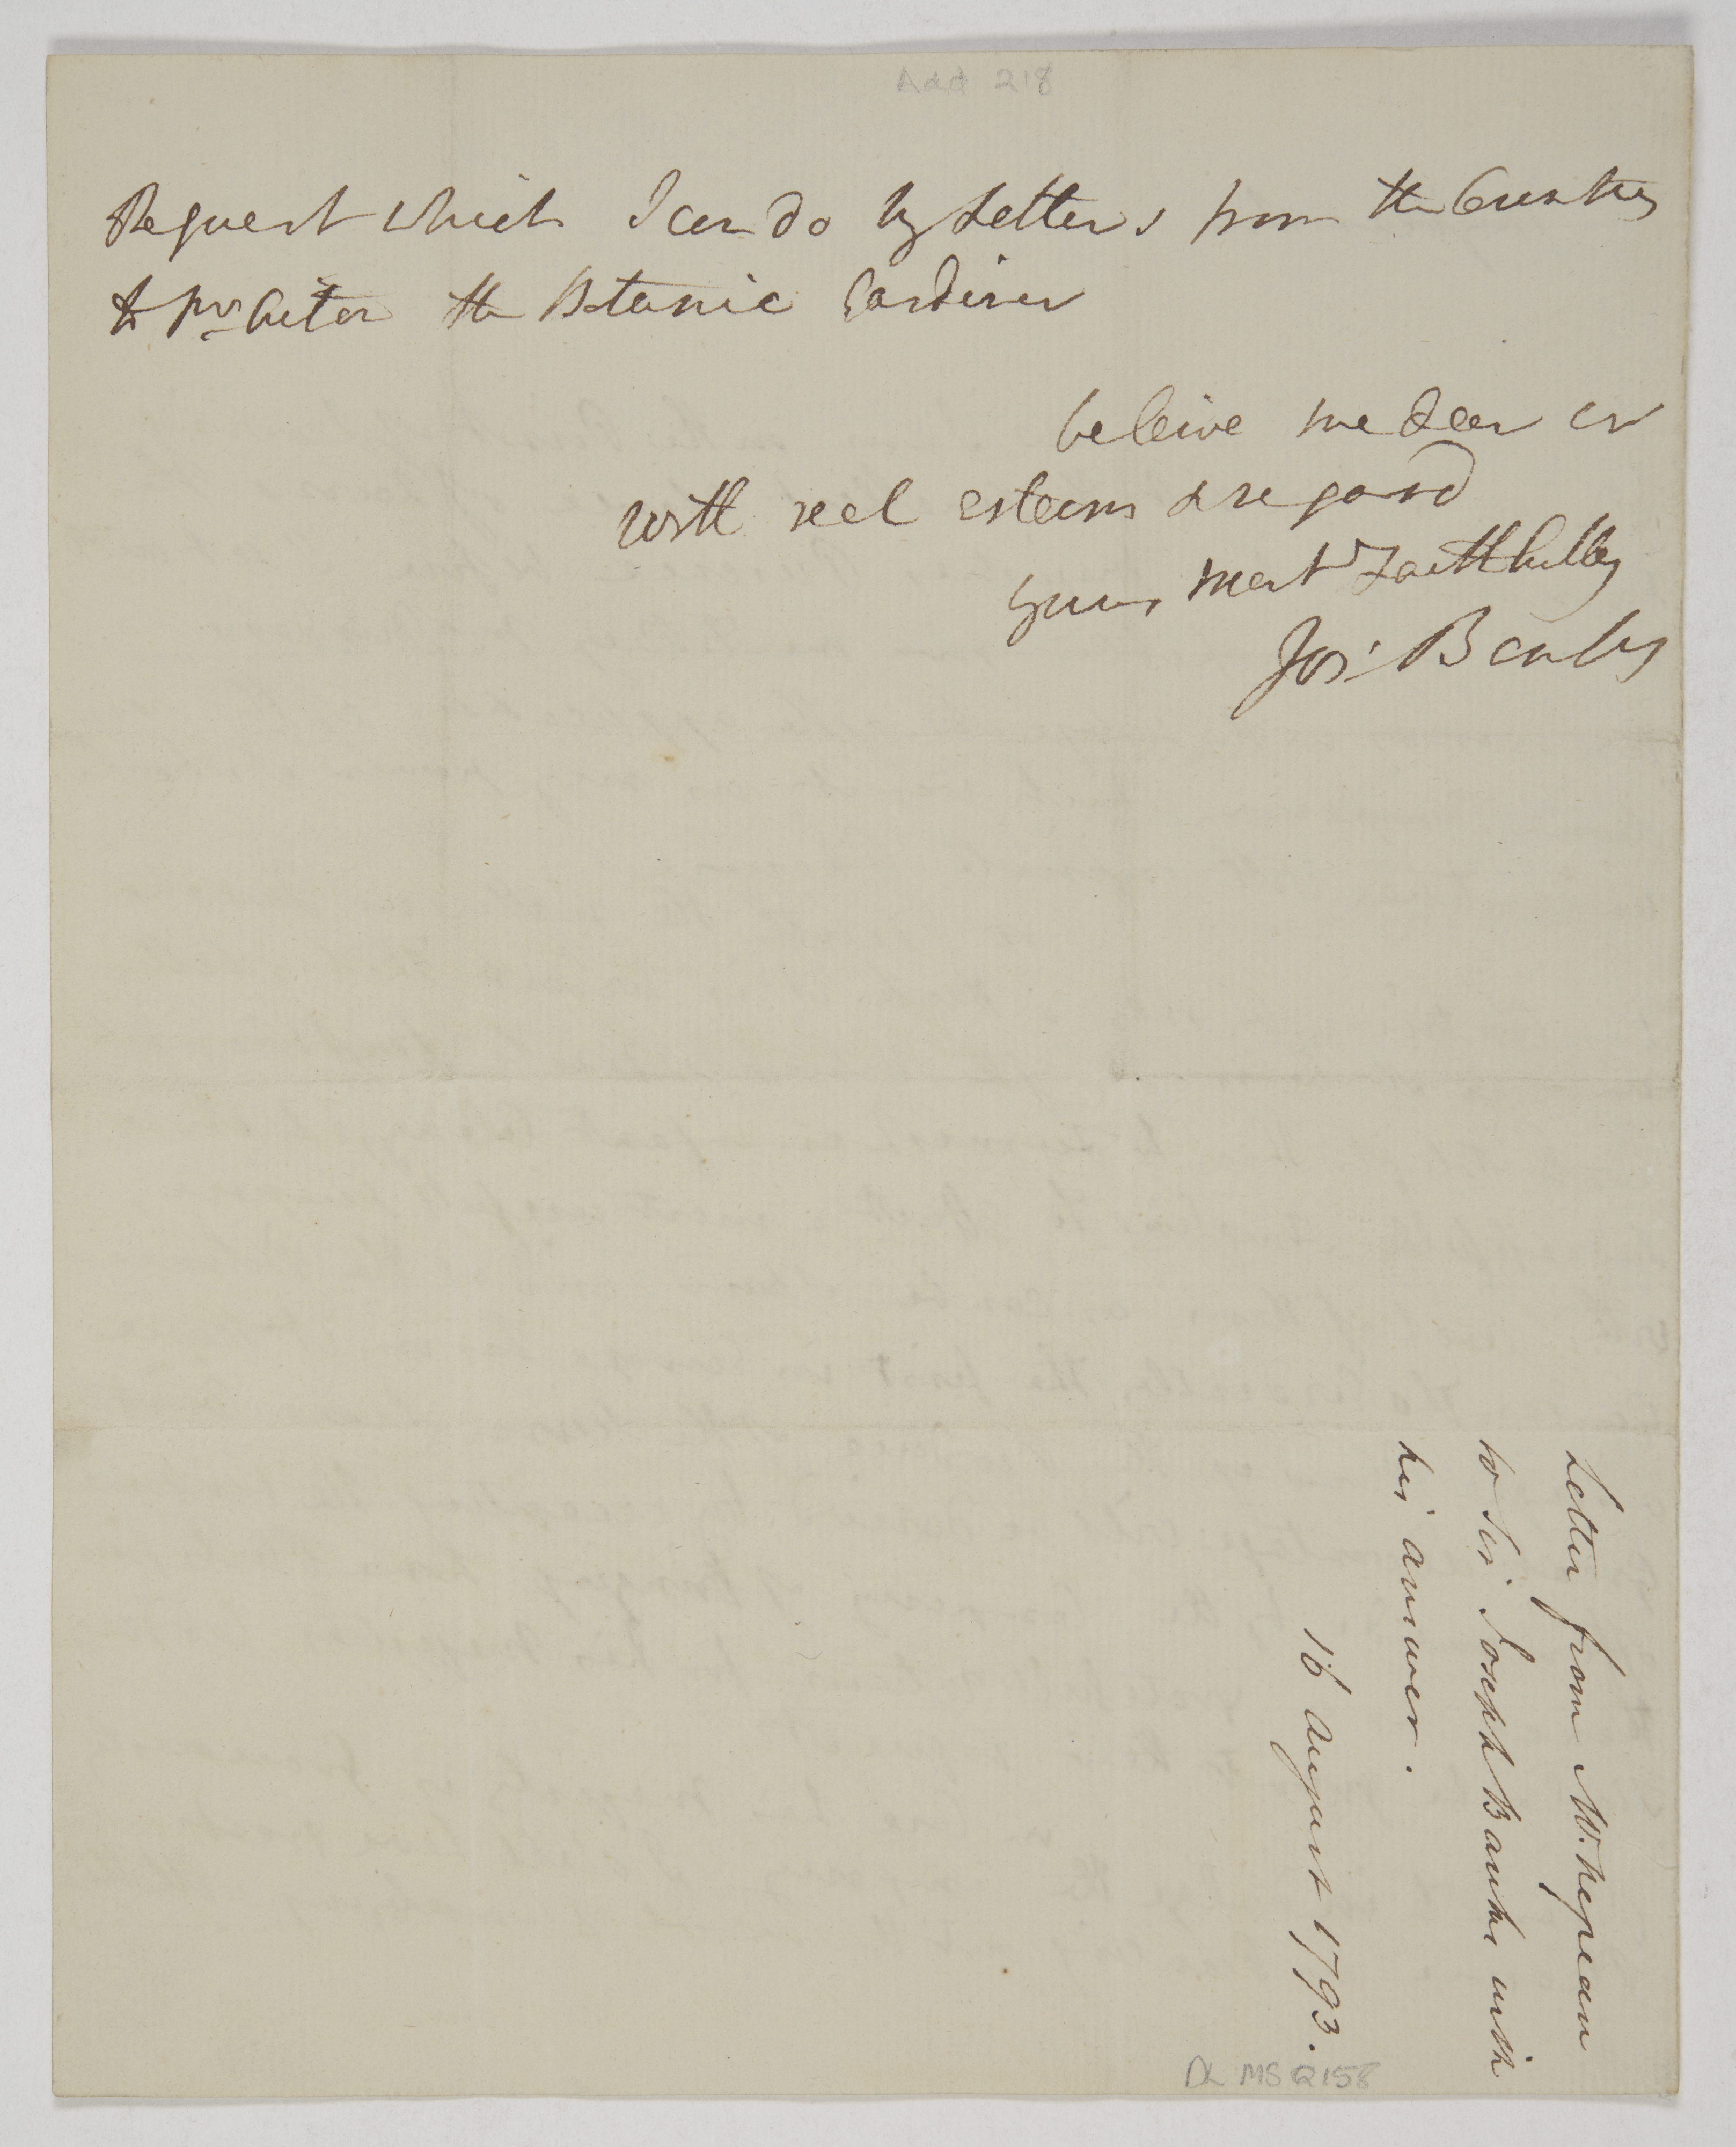 Add 218
Request which I can do by Letters from the Country
to the Botanic Gardiner
beleive me dear Sir
with real esteem & regard
yours most Faithfully
Jos: Banks
Letter from Mr. Nepean
to Sir Joseph Banks with
his answer.
16 August 1793.
DL MS Q158